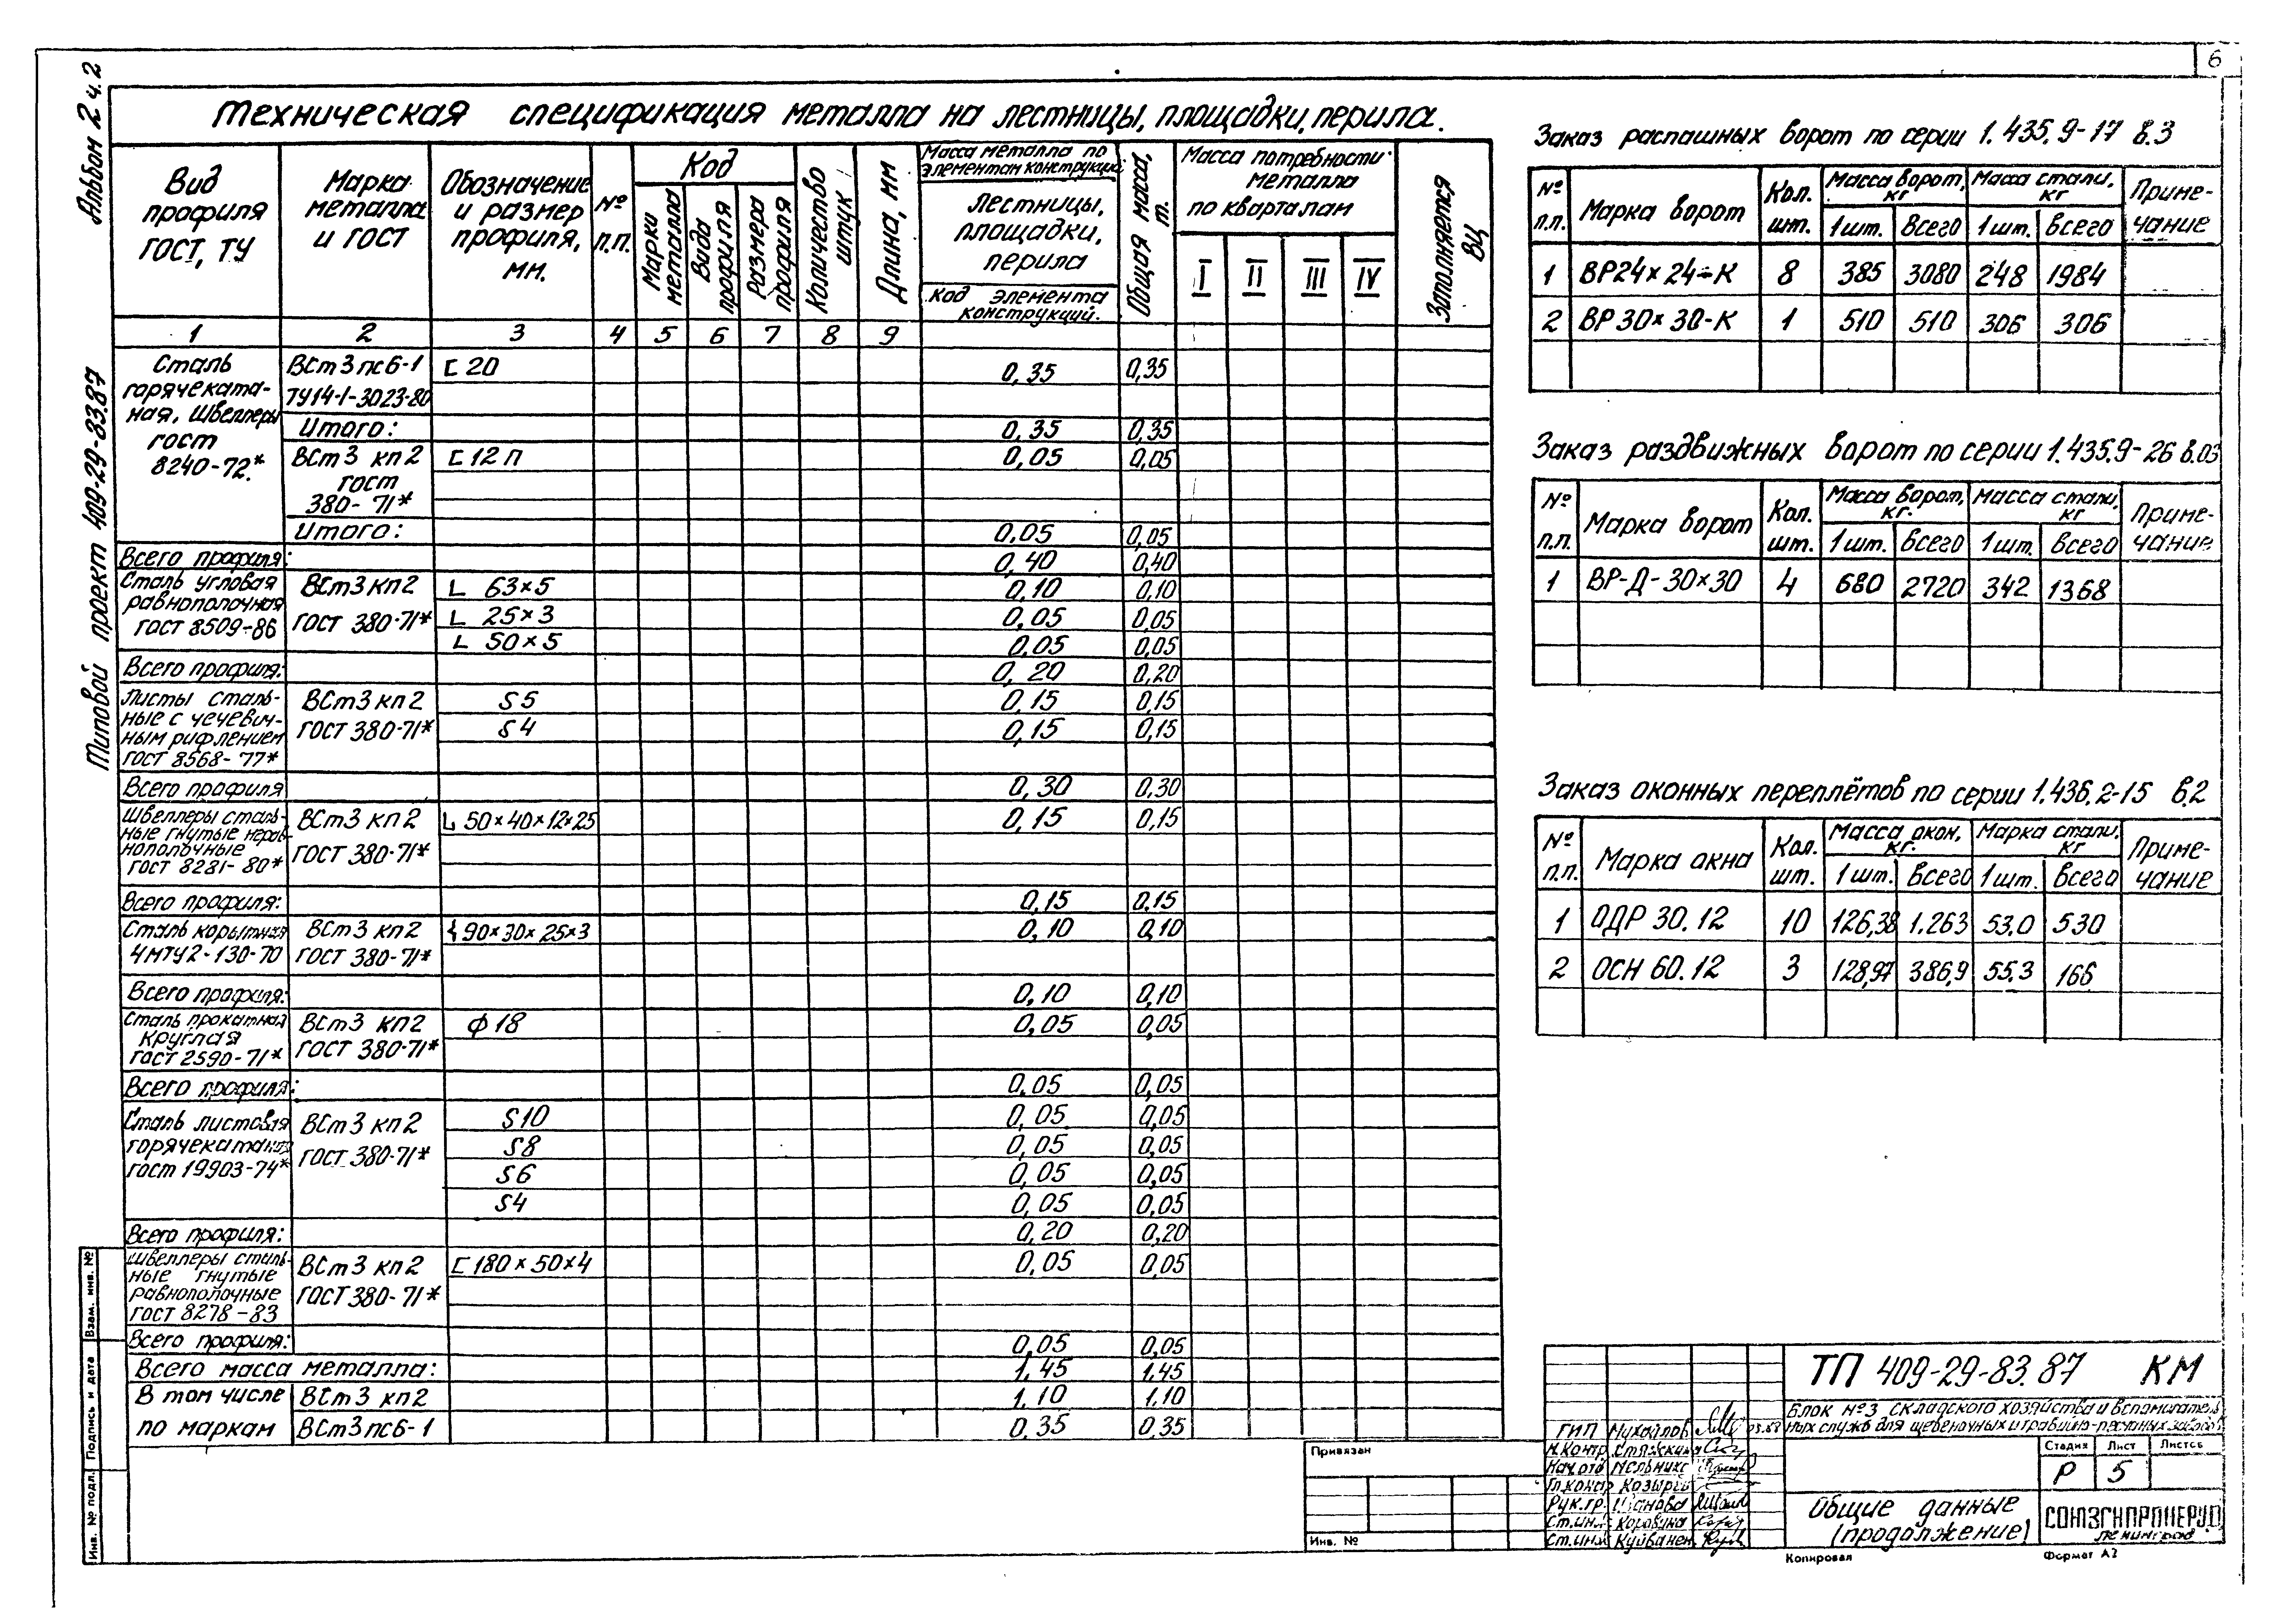 6
Альбом 2 ч.2
Типовой проект 409-29-83.87
Техническая спецификация металла на лестницы, площадки, перила.
Вид профиля ГОСТ, ТУ
Марка металла и ГОСТ
Обозначение и размер профиля, мм.
№ п.п.
Код
Марки металла
Вида профиля
Размера профиля
Количество штук
Длина, мм
Масса металла по элементам конструкций
Лестницы, площадки, перила
Код элемента конструкций.
Общая масса, т.
Масса потребности металла по кварталам
I II III IV
Заполняется ВЦ
1 2 3 4 5 6 7 8 9
Сталь ВСт3пс6-1 [ 20 0,35 0,35
горячеката- ТУ14-1-3023-80
ная, швеллеры Итого: 0,35 0,35
гост ВСт3 кп2 [ 12 п 0,05 0,05
8240-72.* гост
380-71*
Итого: 0,05 0,05
Всего профиля: 0,40 0,40
Сталь угловая ВСт3кп2 L 63×5 0,10 0,10
равнополочная ГОСТ 380-71* L 25×3 0,05 0,05
ГОСТ 8509-86 L 50×5 0,05 0,05
Всего профиля: 0,20 0,20
Листы сталь- ВСт3кп2 S5 0,15 0,15
ные с чечевич- ГОСТ 380-71* S4 0,15 0,15
ным рифлением
ГОСТ 8568-77*
Всего профиля 0,30 0,30
Швеллеры сталь- ВСт3 кп2 50×40×12×25 0,15 0,15
ные гнутые нерав-
нополочные ГОСТ 380-71*
ГОСТ 8281-80*
Всего профиля: 0,15 0,15
Сталь корытная ВСт3 кп2 90×30×25×3 0,10 0,10
ЧМТУ2-130-70 ГОСТ 380-71*
Всего профиля: 0,10 0,10
Сталь прокатная ВСт3 кп2 ф18 0,05 0,05
круглая ГОСТ 380-71*
ГОСТ 2590-71*
Всего профиля: 0,05 0,05
Сталь листовая ВСт3 кп2 S10 0,05 0,05
горячекатаная ГОСТ 380-71* S8 0,05 0,05
гост 19903-74* S6 0,05 0,05
S4 0,05 0,05
Всего профиля: 0,20 0,20
Швеллеры сталь- ВСт3 кп2 [ 180×50×4 0,05 0,05
ные гнутые ГОСТ 380-71*
равнополочные
ГОСТ 8278-83
Всего профиля: 0,05 0,05
Всего масса металла: 1,45 1,45
В том числе ВСт3 кп2 1,10 1,10
по маркам ВСт3пс6-1 0,35 0,35
Заказ распашных ворот по серии 1.435.9-17 в.3
№ п.п. Марка ворот Кол. шт. Масса ворот, кг Масса стали, кг Приме-чание
1 шт. Всего 1 шт. Всего
1 ВР24×24-К 8 385 3080 248 1984
2 ВР30×30-К 1 510 510 306 306
Заказ раздвижных ворот по серии 1.435.9-26 в.03
№ п.п. Марка ворот Кол. шт. Масса ворот, кг. Масса стали, кг Приме-чание
1 шт. Всего 1 шт. Всего
1 ВР-Д-30×30 4 680 2720 342 1368
Заказ оконных переплётов по серии 1.436.2-15 в.2
№ п.п. Марка окна Кол. шт. Масса окон, кг. Марка стали, кг Приме-чание
1 шт. Всего 1 шт. Всего
1 ОДР 30.12 10 126,38 1.263 53.0 530
2 ОСН 60.12 3 128,97 386,9 55.3 166
Взам. инв. №
Подпись и дата
Инв. № подл.
Привязан
Инв. №
ТП 409-29-83.87 КМ
Блок №3 складского хозяйства и вспомогатель-
ных служб для щебеночных и гравийно-песчаных заводов
ГИП Михайлов
Н.контр.
Нач.отд
Гл.констр
Рук.гр.
Ст.инж
Ст.инж
Стадия Лист Листов
Р 5
Общие данные
(продолжение)
СОЮЗГИПРОНЕРУД
Ленинград
Копировал
Формат А2